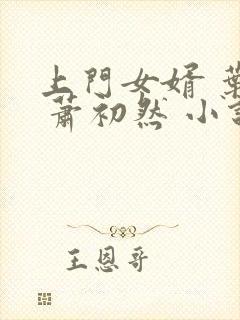 上門女婿 葉
蕭初然 小說
王恩哥